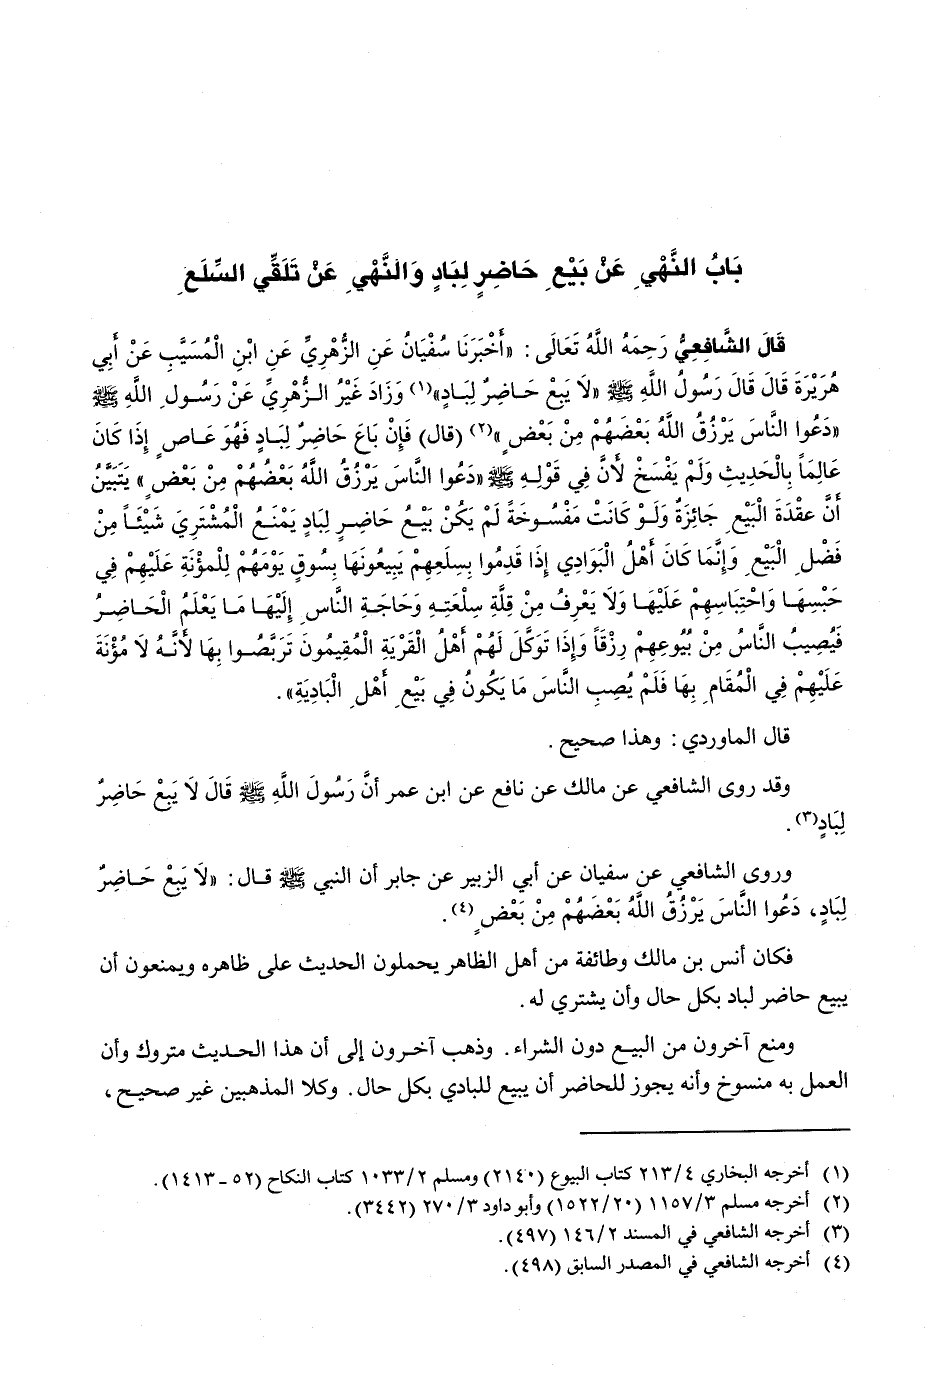 بَابُ النَّهْيِ عَنْ بَيْعِ حَاضِرٍ لِبَادٍ وَالنَّهْيِ عَنْ تَلَقِّي السِّلَعِ
قَالَ الشَّافِعِيُّ رَحِمَهُ اللَّهُ تَعَالَى : «أَخْبَرَنَا سُفْيَانُ عَنِ الزُّهْرِيِّ عَنِ ابْنِ الْمُسَيَّبِ عَنْ أَبِي
هُرَيْرَةَ قَالَ قَالَ رَسُولُ اللَّهِ ﷺ «لَا يَبِعْ حَاضِرٌ لِبَادٍ»(١) وَزَادَ غَيْرُ الزُّهْرِيِّ عَنْ رَسُولِ اللَّهِ ﷺ
«دَعُوا النَّاسَ يَرْزُقُ اللَّهُ بَعْضَهُمْ مِنْ بَعْضٍ»(٢) (قال) فَإِنْ بَاعَ حَاضِرٌ لِبَادٍ فَهُوَ عَاصٍ إِذَا كَانَ
عَالِمَاً بِالْحَدِيثِ وَلَمْ يَفْسَخْ لأَنَّ فِي قَوْلِهِ ﷺ «دَعُوا النَّاسَ يَرْزُقُ اللَّهُ بَعْضُهُمْ مِنْ بَعْضٍ» يَتَبَيَّنُ
أَنَّ عقْدَةَ الْبَيْعِ جَائِزَةٌ وَلَوْ كَانَتْ مَفْسُوخَةً لَمْ يَكُنْ بَيْعُ حَاضِرٍ لِبَادٍ يَمْنَعُ الْمُشْتَرِيَ شَيْئَاً مِنْ
فَضْلِ الْبَيْعِ وَإِنَّمَا كَانَ أَهْلُ الْبَوَادِي إِذَا قَدِمُوا بِسِلَعِهِمْ يَبِيعُونَهَا بِسُوقٍ يَوْمَهُمْ لِلْمؤْنَةِ عَلَيْهِمْ فِي
حَبْسِهَا وَاحْتِبَاسِهِمْ عَلَيْهَا وَلَا يَعْرِفُ مِنْ قِلَّةِ سِلْعَتِهِ وَحَاجَةِ النَّاسِ إِلَيْهَا مَا يَعْلَمُ الْحَاضِرُ
فَيُصِيبُ النَّاسُ مِنْ بُيُوعِهِمْ رِزْقَاً وَإِذَا تَوَكَّلَ لَهُمْ أَهْلُ الْقَرْيَةِ الْمُقِيمُونَ تَرَبَّصُوا بِهَا لأَنَّهُ لَا مُؤْنَةَ
عَلَيْهِمْ فِي الْمُقَامِ بِهَا فَلَمْ يُصِبِ النَّاسَ مَا يَكُونُ فِي بَيْعِ أَهْلِ الْبَادِيَةِ» .
قال الماوردي : وهذا صحيح .
وقد روى الشافعي عن مالك عن نافع عن ابن عمر أنَّ رَسُولَ اللَّهِ ﷺ قَالَ لَا يَبِعْ حَاضِرٌ
لِبَادٍ(٣) .
وروى الشافعي عن سفيان عن أبي الزبير عن جابر أن النبي ﷺ قال : «لَا يَبِعْ حَاضِرٌ
لِبَادٍ، دَعُوا النَّاسَ يَرْزُقُ اللَّهُ بَعْضَهُمْ مِنْ بَعْضٍ(٤) .
فكان أنس بن مالك وطائفة من أهل الظاهر يحملون الحديث على ظاهره ويمنعون أن
يبيع حاضر لباد بكل حال وأن يشتري له .
ومنع آخرون من البيع دون الشراء . وذهب آخرون إلى أن هذا الحديث متروك وأن
العمل به منسوخ وأنه يجوز للحاضر أن يبيع للبادي بكل حال . وكلا المذهبين غير صحيح ،
(١) أخرجه البخاري ٢١٣/٤ كتاب البيوع (٢١٤٠) ومسلم ١٠٣٣/٢ كتاب النكاح (٥٢ - ١٤١٣) .
(٢) أخرجه مسلم ١١٥٧/٣ (١٥٢٢/٢٠) وأبو داود ٢٧٠/٣ (٣٤٤٢) .
(٣) أخرجه الشافعي في المسند ١٤٦/٢ (٤٩٧) .
(٤) أخرجه الشافعي في المصدر السابق (٤٩٨) .